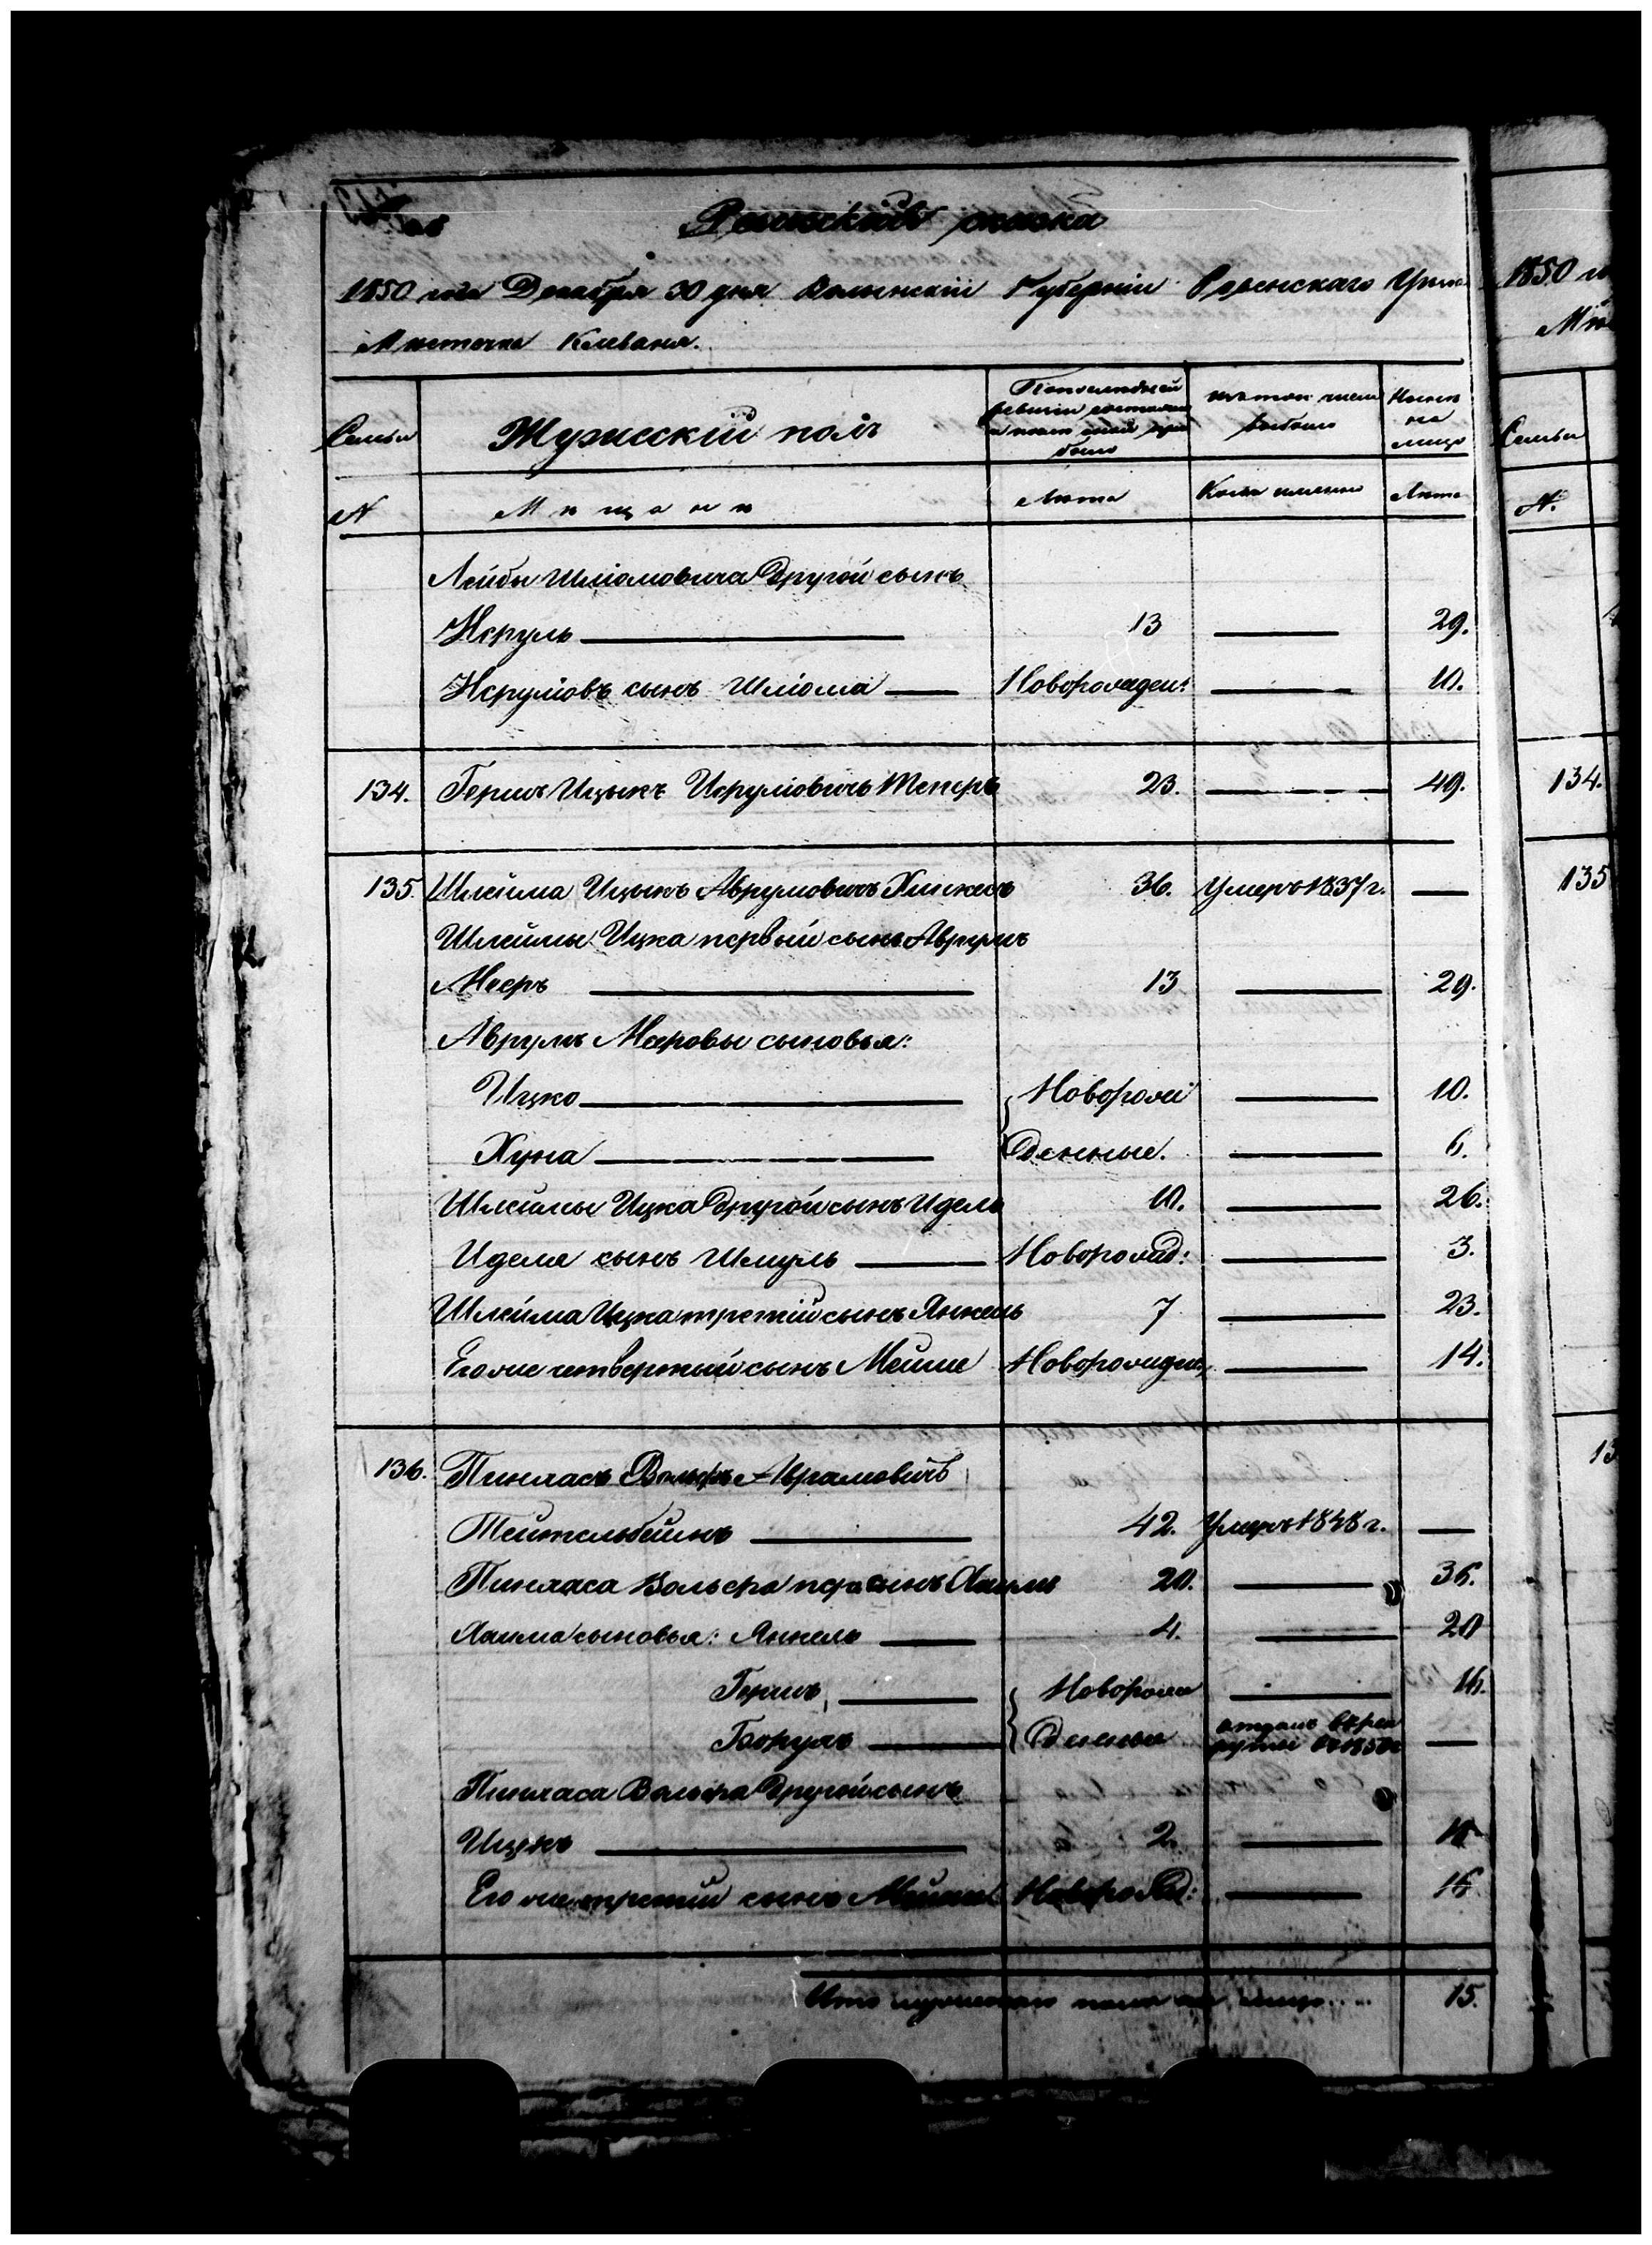 Ревизская сказка
1850 года Декабря 30 дня Волынской Губернiи Ровенскаго Уезда
Местечка Клеваня.
Семьи
Мужескiй полъ
По последней ревизiи состояло и после оной прибыло
Изъ того числа выбыло
Ныне на лицо
Семьи
1850
№
Мещане
Лета
Когда именно
Лета
№.
Лейбы Шліомовича Другой сынъ
Исруль 13 29.
Исруліовъ сынъ Шліома Новорожден: 10.
134. Гершъ Ицыкъ Исруліовичъ Теперъ 23. 49. 134.
135. Шлейма Ицыкъ Аврумовичъ 36. Умеръ 1837 г. 135
Шлеймы Ицка первый сынъ Аврумъ
Мееръ 13 29.
Аврумъ Мееровы сыновья:
Ицко Новорож 10.
Хуна Денные. 6.
Шлеймы Ицка Другой сынъ Идель 10. 26.
Иделя сынъ Шмуль Новорожд: 3.
Шлейма Ицка третій сынъ Янкель 7 23.
Его же четвертый сынъ Мейше Новорожден, 14.
136. Пинхасъ Вольфъ Абрамовичъ
Тейтельбаумъ 42. Умеръ 1848 г.
Пинхаса Вольфа пер. сынъ Хаимъ 20. 36.
Хаима сыновья: Янкель 4. 20
Гершъ Новорож 16.
Борухъ Денные отданъ въ рекруты въ 1850г
Пинхаса Вольфа Другой сынъ
Ицекъ 2. 18
Его же третій сынъ Новорожд: 16
Итого мужескаго пола на лицо 15.